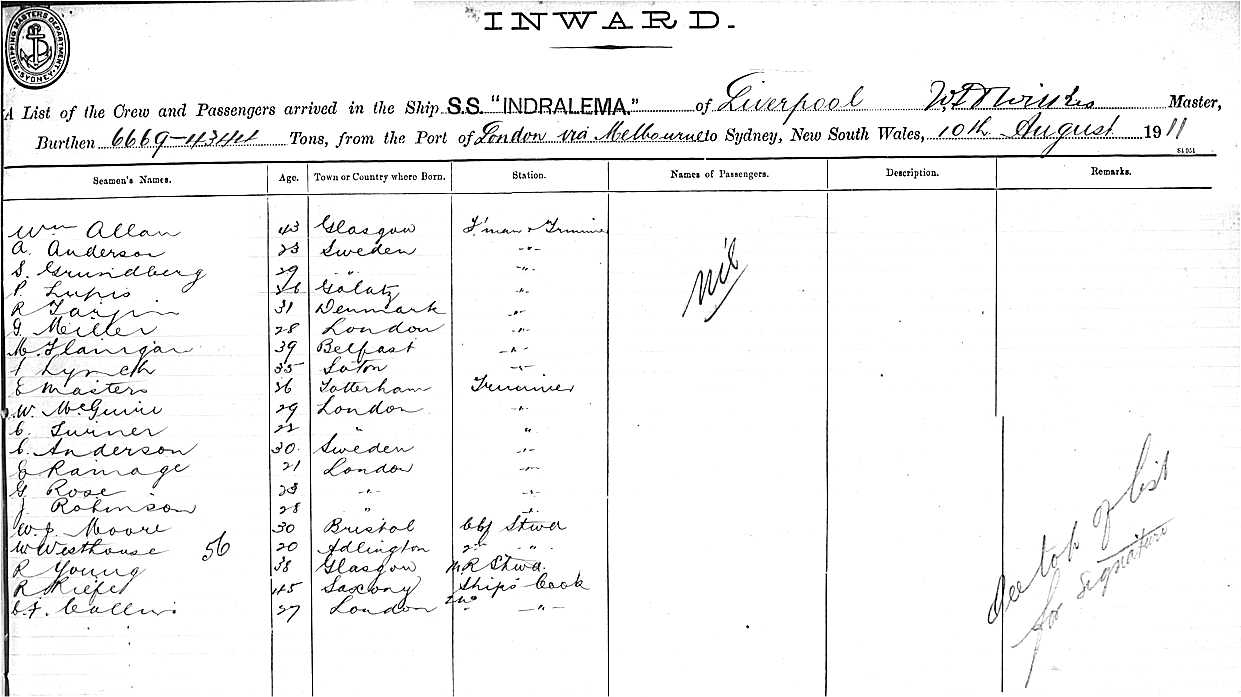 INWARD.
SHIPPING MASTERS DEPARTMENT SYDNEY
A List of the Crew and Passengers arrived in the Ship S.S. "INDRALEMA." of Liverpool Master,
Burthen 6669-4344 Tons, from the Port of London via Melbourne to Sydney, New South Wales, 10th August 1911
Seamen's Names. Age. Town or Country where Born. Station. Names of Passengers. Description. Remarks.
Wm Allan 43 Glasgow F'man & Trimmer
A. Anderson 23 Sweden -"-
nil
S. Grundberg 29 " -"-
P. Lupis 26 Galatz -"-
R 31 Denmark -"-
G. Miller 28 London -"-
M. Flanigan 39 Belfast -"-
Lynch 35 -"-
E Masters 26 Totterham Trimmer
W. McGuire 29 London -"-
C. Turner 22 " "
C. Anderson 30 Sweden -"-
E Ramage 21 London -"-
G. Rose 23 -"- -"-
J. Robinson 28 " -"-
W. J. Moore 30 Bristol Chf Stwd
W Westhouse 56 20 Adlington 2nd -"-
R Young 38 Glasgow M R Stwd
R 45 Saxony Ship's Cook
Collins 27 London 2nd -"-
See top of list
for signature